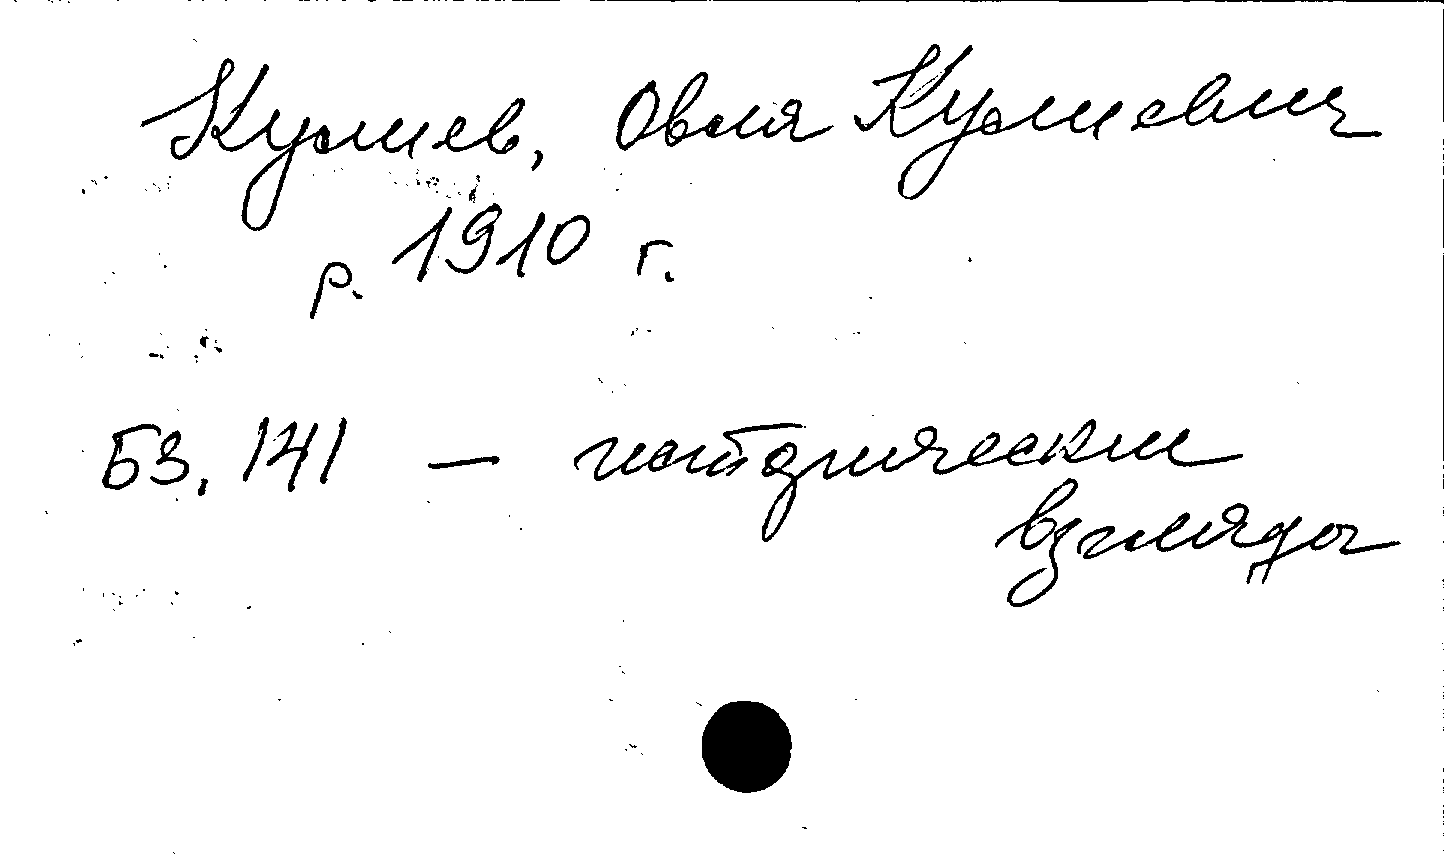 Кулиев, Овля Кулиевич
р. 1910 г.
Б3, 141 — исторические
взгляды